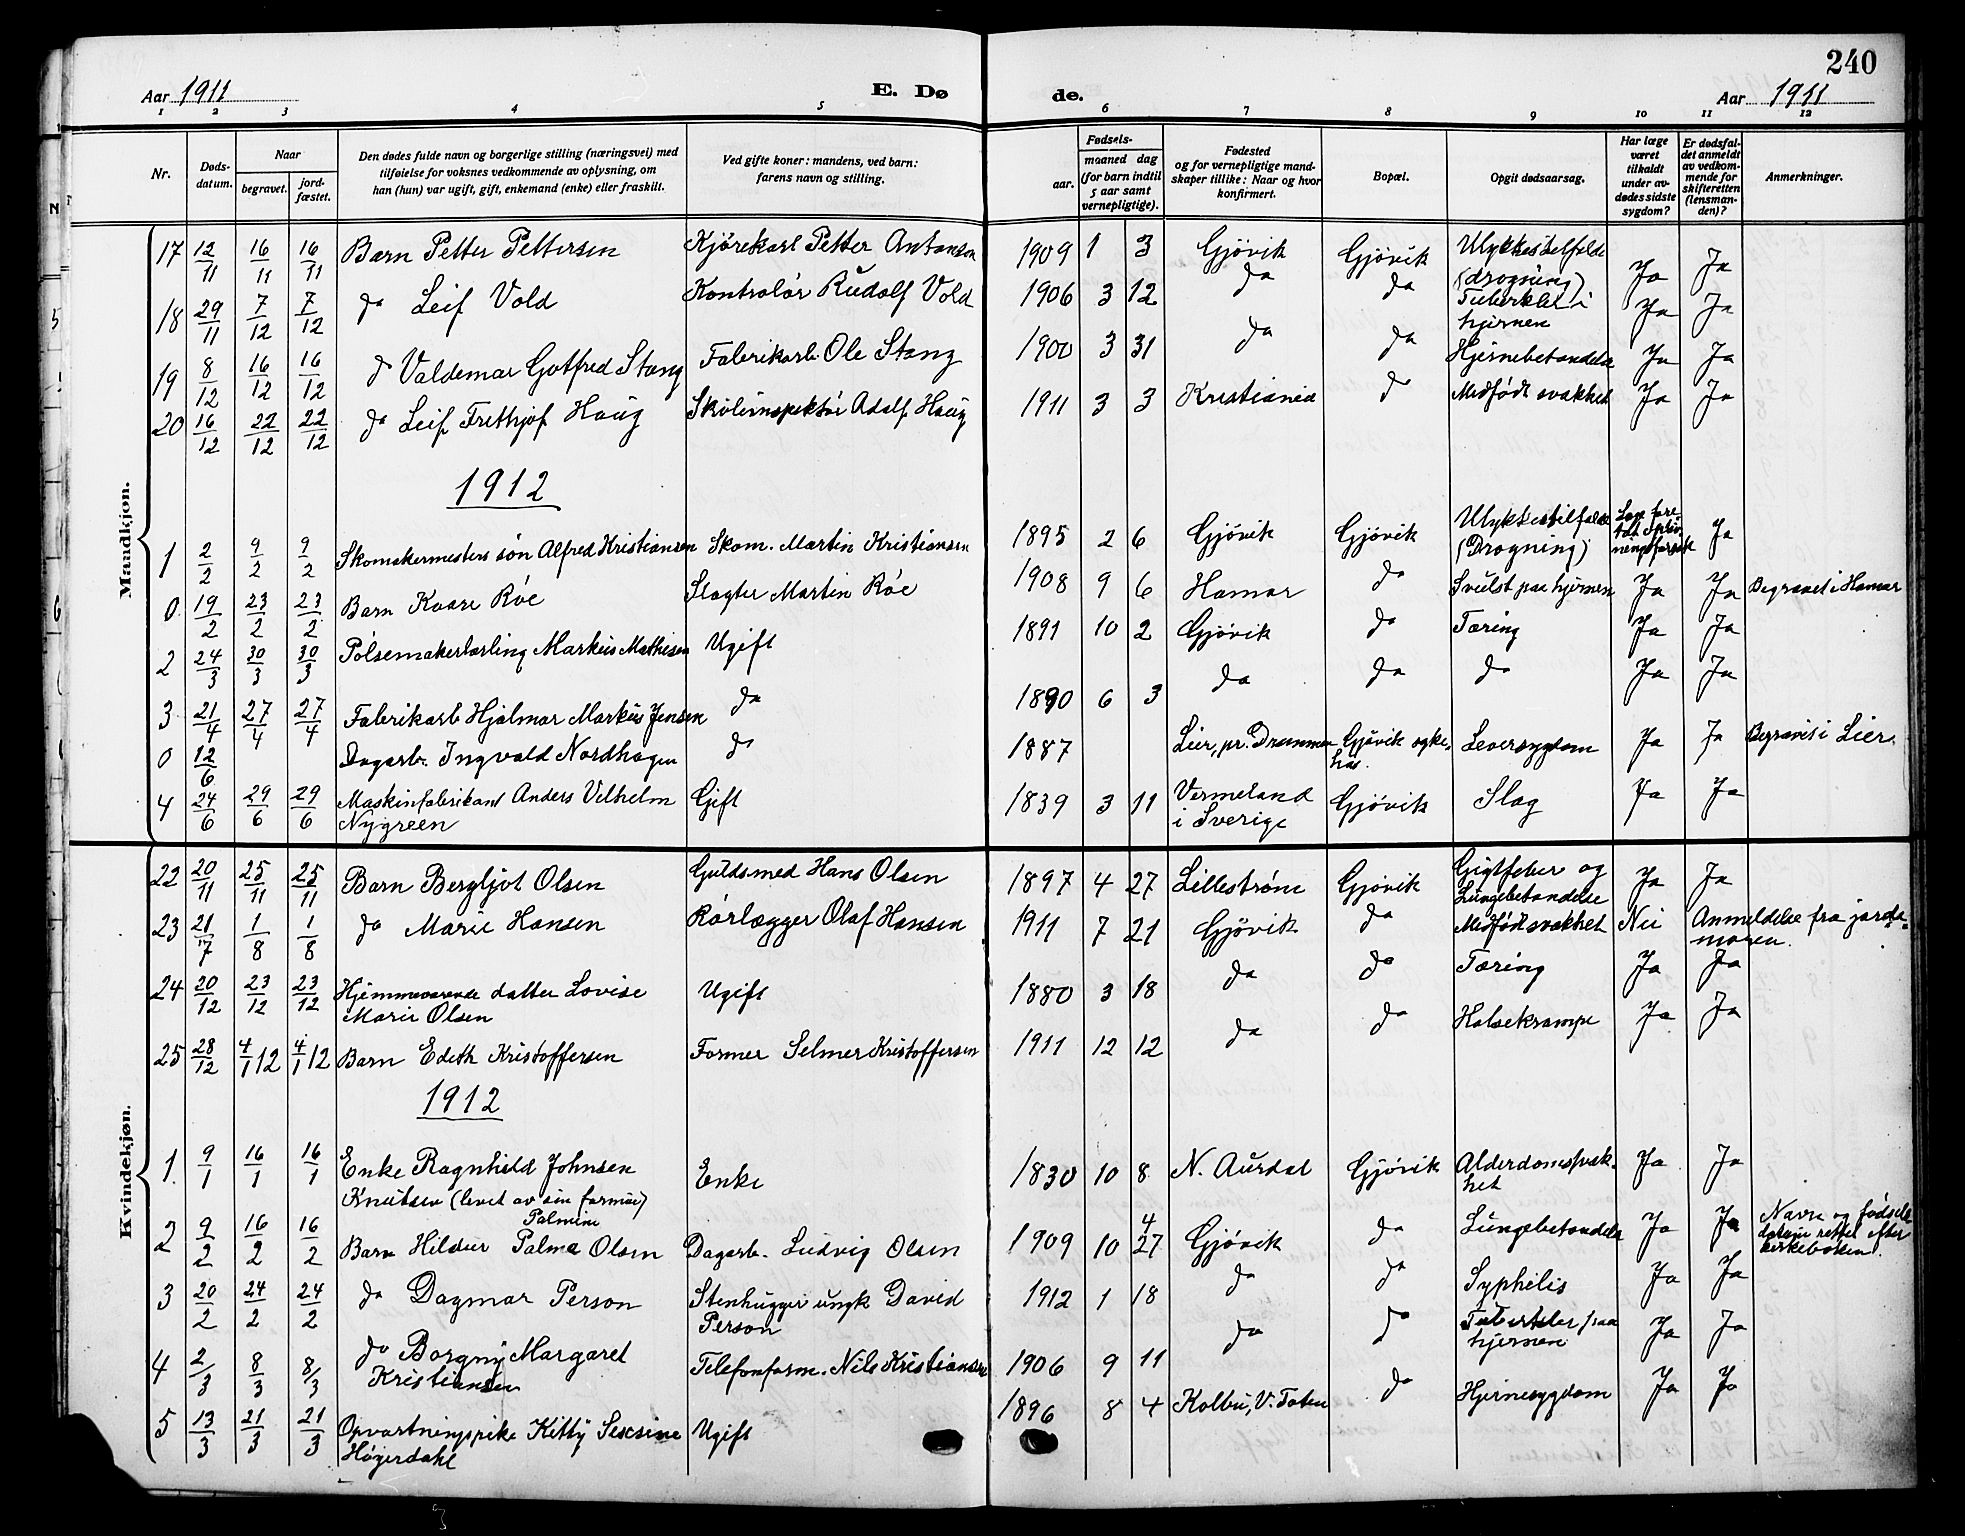 240
Aar 1911 E. Dø de. Aar 1911
1 2 3 4 5 6 7 8 9 10 11 12
Nr. Døds-datum. Naar begravet. jord-fæstet. Den dødes fulde navn og borgerlige stilling (næringsvei) med tilføielse for voksnes vedkommende av oplysning, om han (hun) var ugift, gift, enkemand (enke) eller fraskilt. Ved gifte koner: mandens, ved barn: farens navn og stilling. Fødsels- aar. maaned dag (for barn indtil 5 aar samt vernepligtige). Fødested og for vernepligtige mandskaper tillike: Naar og hvor konfirmert. Bopæl. Opgit dødsaarsag. Har læge været tilkaldt under avdødes sidste sygdom? Er dødsfaldet anmeldt av vedkommende for skifteretten (lensmanden)? Anmerkninger.
Mandkjøn.
17 12/11 16/11 16/11 Barn Petter Pettersen Kjørekarl Petter Antonsen 1909 1 3 Gjøvik Gjøvik Ulykkestilfelde (drogning) Ja Ja
18 29/11 7/12 7/12 do Leif Vold Kontrolør Rudolf Vold 1906 3 12 do do Tuberkler i hjernen Ja Ja
19 8/12 16/12 16/12 do Valdemar Gotfred Stang Fabrikarb. Ole Stang 1900 3 31 do do Hjernebetændelse Ja Ja
20 16/12 22/12 22/12 do Leif Frithjof Haug Skoleinspektør Adolf Haug 1911 3 3 Kristiania do Medfødt svakhet Ja Ja
1912
1 2/2 9/2 9/2 Skomakermesters søn Alfred Kristiansen Skom. Martin Kristiansen 1895 2 6 Gjøvik Gjøvik Ulykkestilfælde (Drogning) Ja
0 19/2 23/2 23/2 Barn Kaare Røe Slagter Martin Røe 1908 9 6 Hamar do Svulst paa hjernen Ja Ja Begravet i Hamar
2 24/3 30/3 30/3 Pølsemakerlærling Markus Mathisen Ugift 1891 10 2 Gjøvik do Tæring Ja Ja
3 21/4 27/4 27/4 Fabrikarb Hjalmar Markus Jensen do 1890 6 3 do do do Ja Ja
0 12/6 Dagarb. Ingvald Nordhagen do 1887 Lier, pr. Drammen Gjøvik sykehus. Leversygdom Ja Ja Begraves i Lier
4 24/6 29/6 29/6 Maskinfabrikant Anders Vilhelm Nygreen Gift 1839 3 11 Vermeland i Sverige Gjøvik Slag Ja Ja
Kvindekjøn.
22 20/11 25/11 25/11 Barn Bergljot Olsen Guldsmed Hans Olsen 1897 4 27 Lillestrøm Gjøvik Gigtfeber og Lungebetændelse Ja Ja
23 21/7 1/8 1/8 do Marie Hansen Rørlægger Olaf Hansen 1911 7 21 Gjøvik do Medfødt svakhet Nei Anmeldelse fra jordemoren.
24 20/12 23/12 23/12 Hjemmeværende datter Lovise Marie Olsen Ugift 1880 3 18 do do Tæring Ja Ja
25 28/12 4/1 12 4/1 12 Barn Edeth Kristoffersen Former Selmer Kristoffersen 1911 12 12 do do Halsekrampe Ja Ja
1912
1. 9/1 16/1 16/1 Enke Ragnhild Johnsen Knutsen (levet av sin formue) Enke 1830 10 8 N. Aurdal Gjøvik Alderdomssvakhet Ja Ja
2 9/2 16/2 16/2 Barn Hildur Palma Palmine Olsen Dagarb. Ludvig Olsen 1909 10 4 27 Gjøvik do Lungebetændelse Ja Ja Navn og fødselsdatum rettet efter kirkeboken.
3 20/2 24/2 24/2 do Dagmar Person Stenhugger David Person 1912 1 18 do do Syphilis Ja Ja
4 2/3 8/3 8/3 do Borgny Margaret Kristiansen Telefonform. Nils Kristiansen 1906 9 11 do do Tuberkler paa hjernen Ja Ja
5 13/3 21/3 21/3 Opvartningspike Kitty Høgerdahl Ugift 1896 8 4 Kolbu, V. Toten do Hjernesygdom Ja Ja